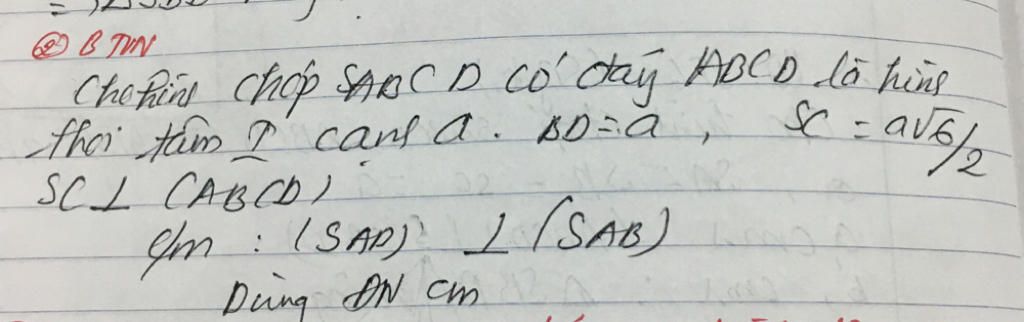 ② BTVN
Cho hình chóp SABCD có đáy ABCD là hình
thoi tâm I cạnh a. BD = a, SC = a√6/2
SC ⊥ (ABCD)
c/m : (SAD) ⊥ (SAB)
Dùng ĐN cm